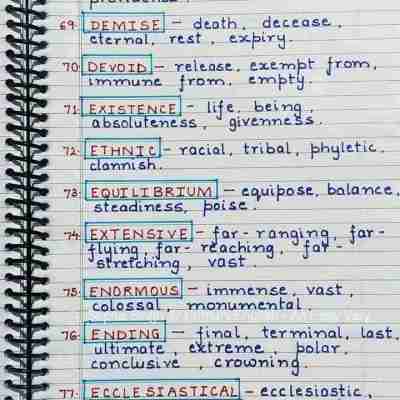 69. DEMISE - death, decease,
eternal, rest, expiry.
70. DEVOID - release, exempt from,
immune from, empty.
71. EXISTENCE - life, being,
absoluteness, givenness.
72. ETHNIC - racial, tribal, phyletic,
clannish.
73. EQUILIBRIUM - equipose, balance,
steadiness, poise.
74. EXTENSIVE - far-ranging, far-
flying, far-reaching, far-
stretching, vast.
75. ENORMOUS - immense, vast,
colossal, monumental.
76. ENDING - final, terminal, last,
ultimate, extreme, polar,
conclusive, crowning.
77. ECCLESIASTICAL - ecclesiostic,